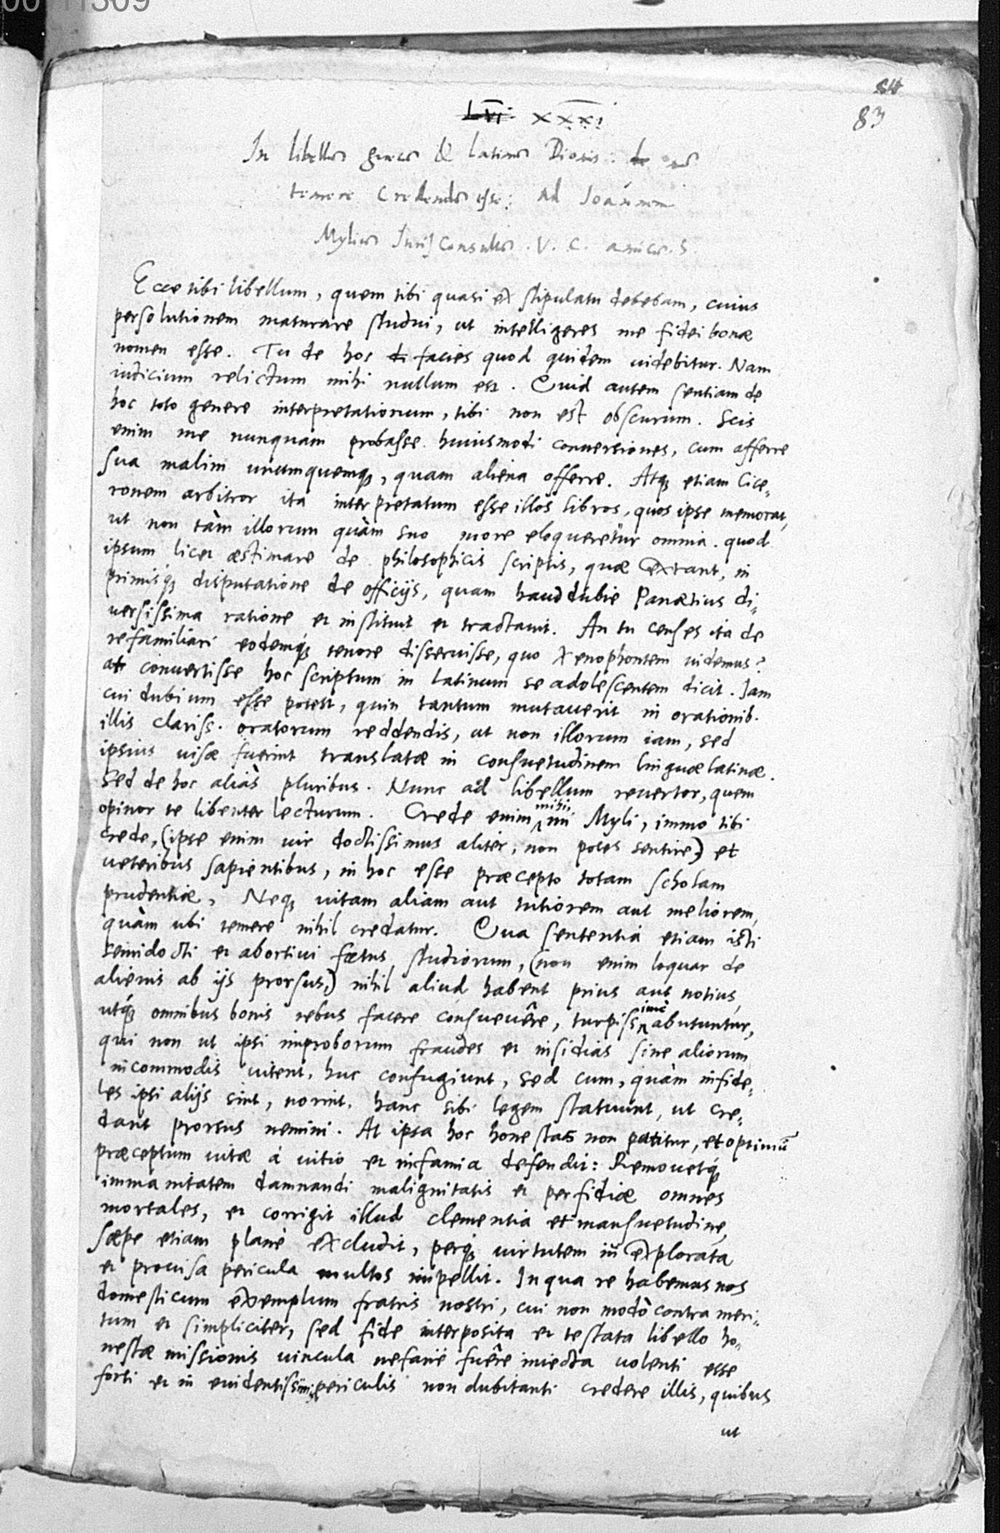 84
83
LVI XXXI
In libellos graecos & latinos Dionis: de non
temere credendo esse: Ad Joannem
Mylium Jurisconsultum. V. C. amicum. S.
Ecce tibi libellum, quem tibi quasi ex stipulatu debebam, cuius
persolutionem maturare studui, ut intelligeres me fidei bonæ
nomen esse. Tu de hoc facies quod quidem uidebitur. Nam
iudicium relictum mihi nullum est. Quid autem sentiam de
hoc toto genere interpretationum, tibi non est obscurum. Scis
enim me nunquam probasse huiusmodi conuersiones, cum afferre
sua malim unumquemq;, quam aliena offerre. Atq; etiam Cice-
ronem arbitror ita interpretatum esse illos libros, quos ipse memorat,
ut non tàm illorum quàm suo more eloqueretur omnia. quod
ipsum licet æstimare de philosophicis scriptis, quæ extant, in
primisq́; disputatione de officijs, quam haud dubie Panætius di-
uersissima ratione et instituit et tractauit. An tu censes ita de
re familiari eodemq́; tenore disseruisse, quo Xenophontem uidemus?
at conuertisse hoc scriptum in latinum se adolescentem dicit. Iam
cui dubium esse potest, quin tantum mutauerit in orationib.
illis clariss. oratorum reddendis, ut non illorum iam, sed
ipsius uisæ fuerint translatæ in consuetudinem linguæ latinæ.
Sed de hoc aliàs pluribus. Nunc ad libellum reuertor, quem
opinor te libenter lecturum. Crede enim mihi Myli, immo tibi
crede, (ipse enim uir doctissimus aliter, non potes sentire) et
ueteribus sapientibus, in hoc esse præcepto totam scholam
prudentiæ, Neq; uitam aliam aut tutiorem aut meliorem,
quàm ubi temere nihil credatur. Qua sententia etiam isti
semidocti et abortiui fœtus studiorum, (non enim loquar de
alienis ab ijs prorsus,) nihil aliud habent prius aut notius,
utq́; omnibus bonis rebus facere consueuêre, turpissimè abutuntur,
qui non ut ipsi improborum fraudes et insidias sine aliorum
incommodis uitent, huc confugiunt, sed cum, quàm infide-
les ipsi alijs sint, norint, hanc sibi legem statuunt, ut cre-
dant prorsus nemini. At ipsa hoc honestas non patitur, et optimū
præceptum uitæ à uitio et infamia defendit: Remouetq́;
immanitatem damnandi malignitatis et perfidiæ omnes
mortales, et corrigit illud clementia et mansuetudine,
sæpe etiam planè excludit, perq́; uirtutem in explorata
et prouisa pericula multos impellit. In qua re habemus nos
domesticum exemplum fratris nostri, cui non modò contra meri-
tum et simpliciter, sed fide interposita et testata libello ho-
nestæ missionis uincula nefarie fuêre iniecta uolenti esse
forti et in euidentissimis periculis non dubitanti credere illis, quibus
ut